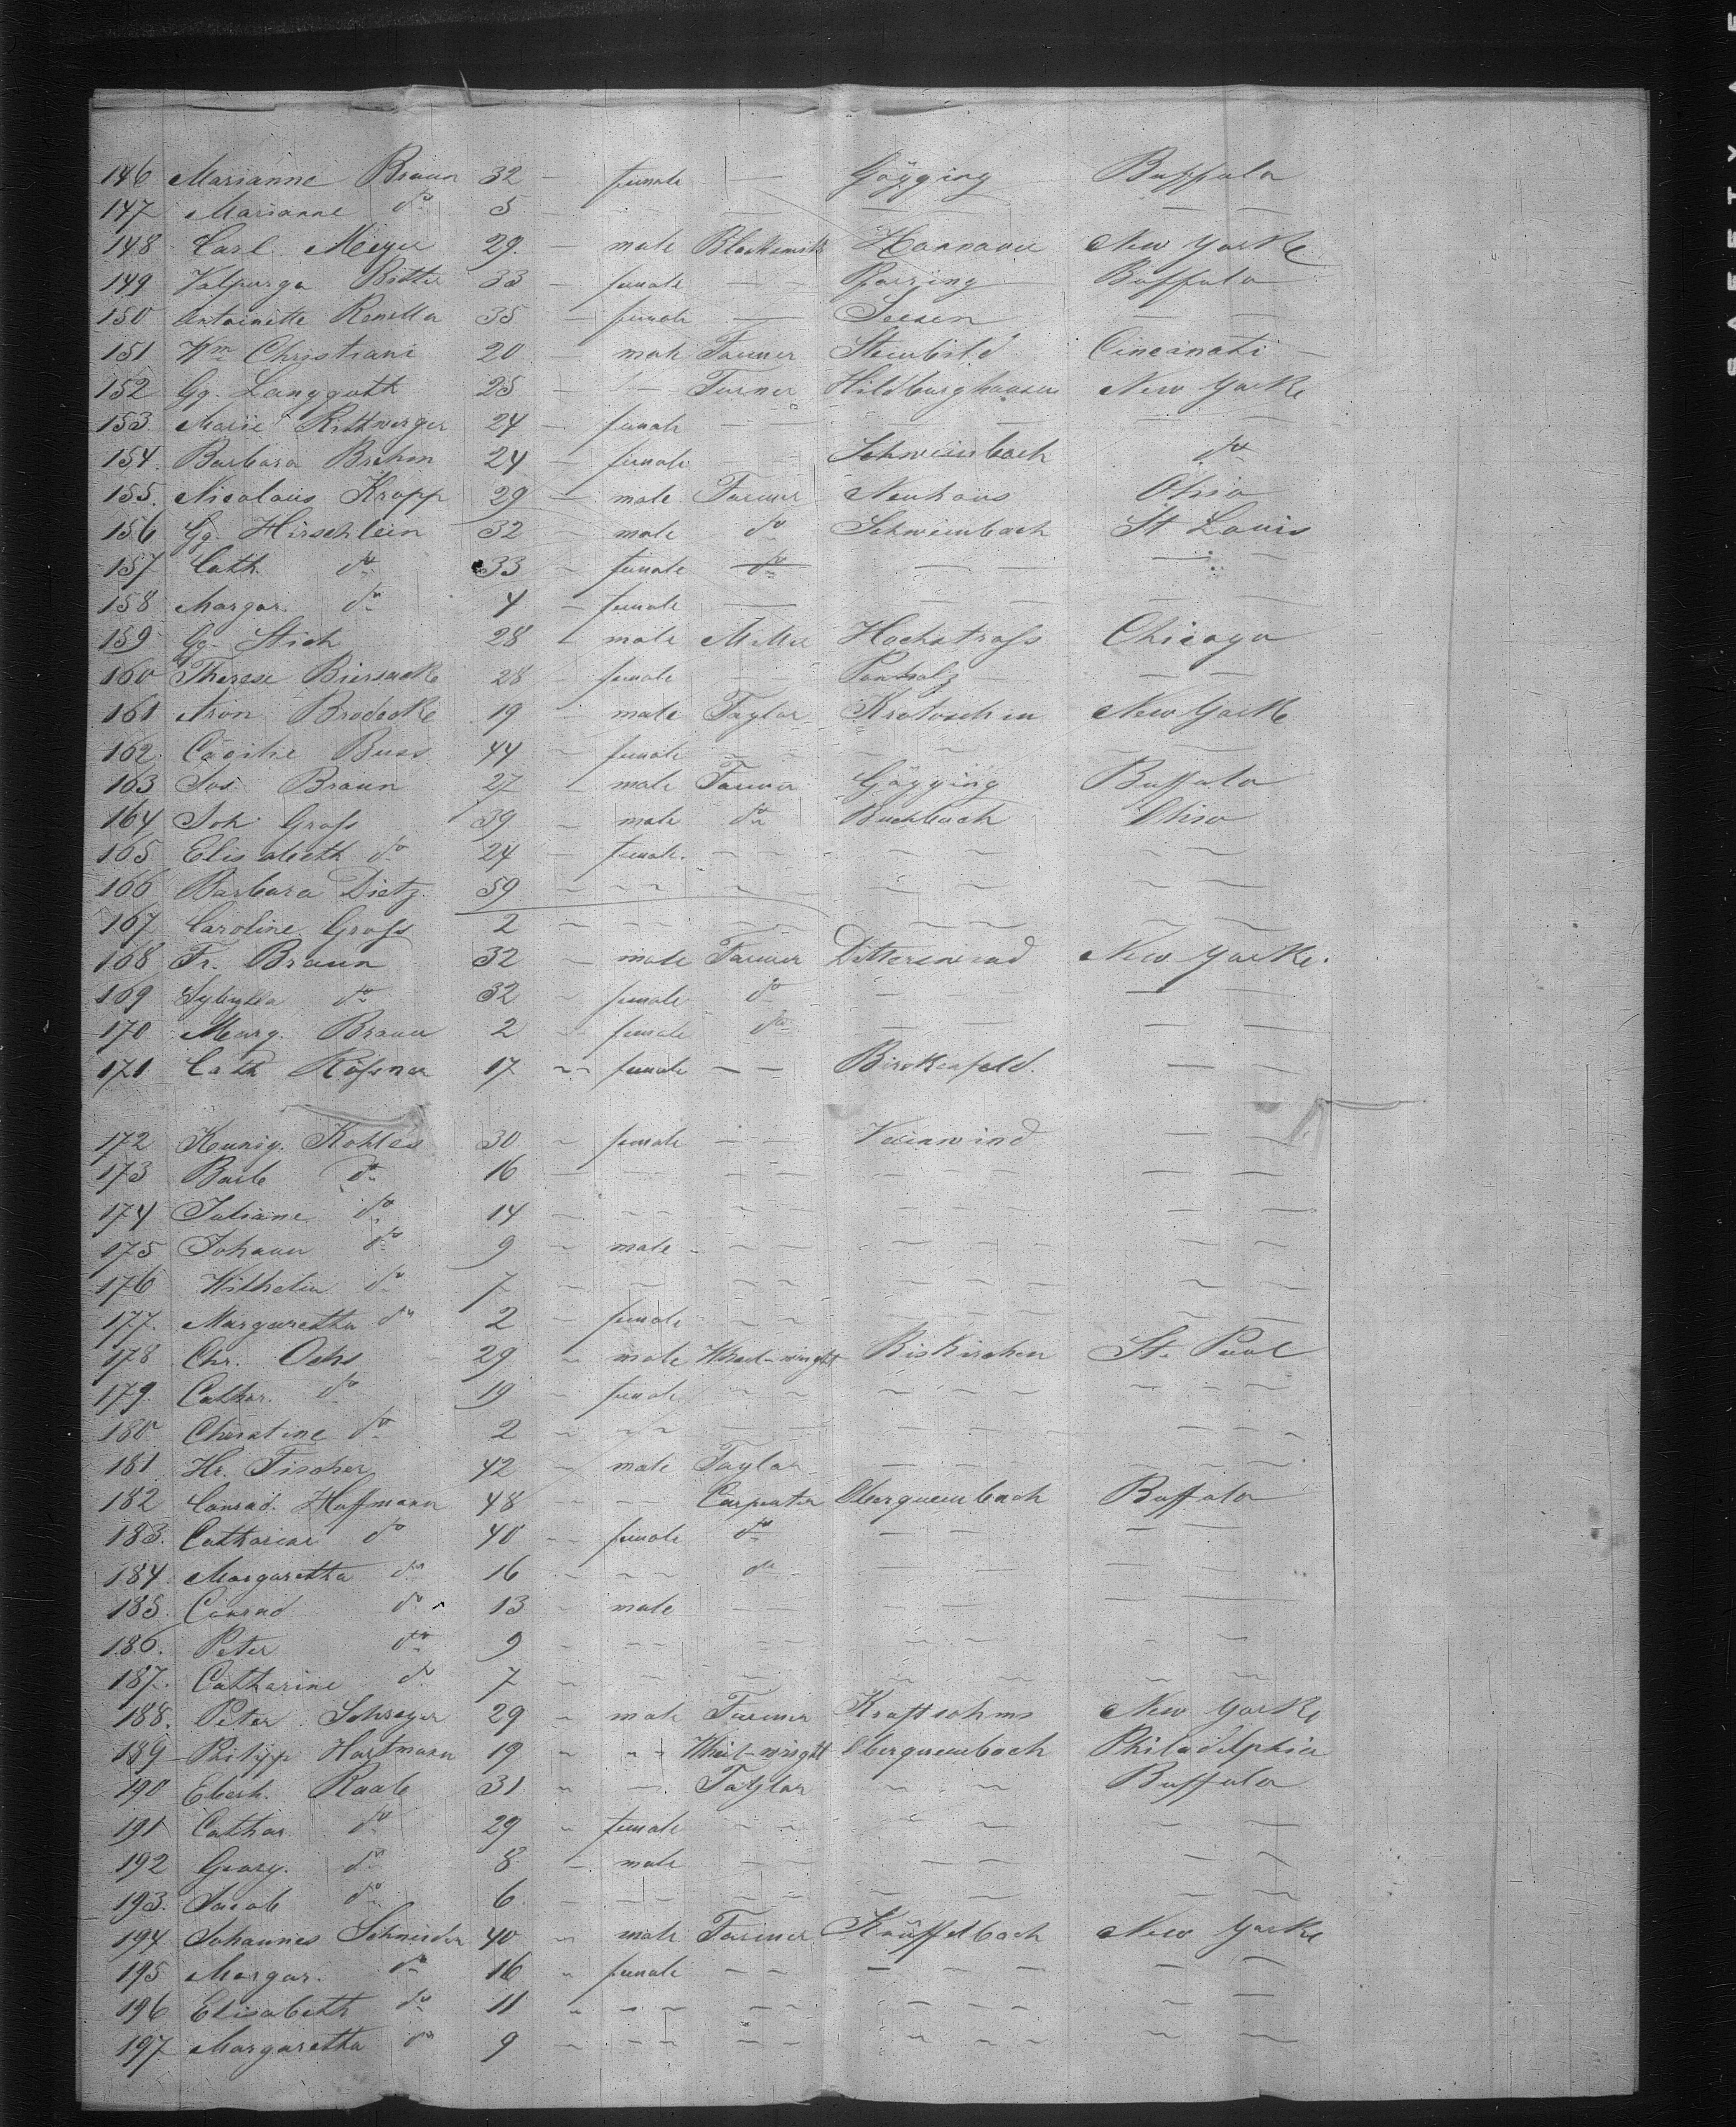 146 Marianne Braun 32 — female — Gögging Buffalo
147 Marianne do 5 — — — — — —
148 Carl Meyer 29 — male Blacksmith Hannover New Yorke
149 Valpurga Bitter 33 — female — — Buffalo
150 Antoinette Renella 35 — female — Seesen — —
151 Wm Christiani 20 male Farmer Steinbild Cincinati —
152 Gg. Langguth 25 — — Turner Hildburghausen New Yorke
153 Marie 24 — female — — — —
154. Barbara Brehm 24 — female — — Schweinbach do
155. Nicolaus Kropp 29 — male Farmer Neuhaus Ohio
156 Gg. Hirschlein 32 male do Schweinbach St Louis
157 Cath. do 33 — female do — — — —
158 Margar. do 4 — female — — — — —
159 Gg. Stich 28 male Miller Hochstrass Chicago
160 Therese 28 female — — — —
161 Aron Brodecke 19 male Taylor Krotoschin New Yorke
162. Cäcilie Buss 44 — female — — — — — —
163 Jos. Braun 27 male Farmer Gögging Buffalo
164 Joh. Gross 39 — male do Buchbach Ohio
165 Elisabeth do 24 — female. — — — — — —
166 Barbara Dietz 59 — — — — — — — —
167 Caroline Gross 2 — — — — — — — —
168 Fr. Braun 32 — male Farmer Ditterswind New Yorke.
169 Sybylla do 32 — female do — — — —
170 Marg. Braun 2 — female do — — — —
171 Cath Rössner 17 — female — — Birkenfeld. — —
172 Kunig. Kohles 30 — female — — — —
173 Barb do 16 — — — — — — — —
174 Juliane do 14 — — — — — — — —
175 Johann do 9 — male — — — — — — —
176 Wilhelm do 7 — — — — — — — —
177. Margaretha do 2 — female — — — — — —
178 Chr. Ochs 29 — male Wheel-wright Biskirchen St. Paul
179. Cathar. do 19 — female — — — — — —
180 Christine do 2 — — — — — — — —
181 Hr. Fischer 42 — male Taylor — — — — — —
182 Conrad Hoffmann 48 — — Carpenter Oberquembach Buffalo
183. Catharine do 40 — female do — — — —
184. Margaretha do 16 — — — do — — —
185. Conrad do 13 — male — — — — — —
186. Peter do 9 — — — — — — — —
187. Catharine do 7 — — — — — — —
188. Peter Schreyer 29 — male Farmer Kraftsohms New Yorke
189 Philipp Hartmann 19 — — Wheel-wright Oberquembach Philadelphia
190 Eberh. Raab 31. — — Taylor — — Buffalo
191 Cathar. do 29 — female — — — — — —
192 Georg. do 8 — male — — — — — —
193. Jacob do 6 — — — — — — — —
194 Johannes Schneider 40 — male Farmer New Yorke
195 Margar. do 16 — female — — — — — — —
196 Elisabeth do 11 — — — — — — — —
197 Margaretha do 9 — — — — — — — —